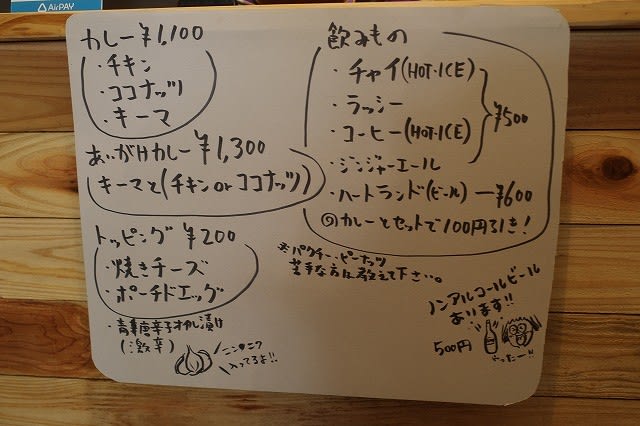 AirPAY
カレー ¥1,100
・チキン
・ココナッツ
・キーマ
あいがけカレー ¥1,300
キーマと(チキン or ココナッツ)
トッピング ¥200
・焼きチーズ
・ポーチドエッグ
・青唐辛子オイル漬け
(激辛)
ニンニク
入ってるよ!!
飲みもの
・チャイ(HOT・ICE)
・ラッシー
・コーヒー(HOT・ICE)
・ジンジャーエール
¥500
・ハートランド(ビール) ー ¥600
カレーとセットで100円引き!
※パクチー・ピーナッツ
苦手な方は教えて下さい。
ノンアルコールビール
あります!!
500円